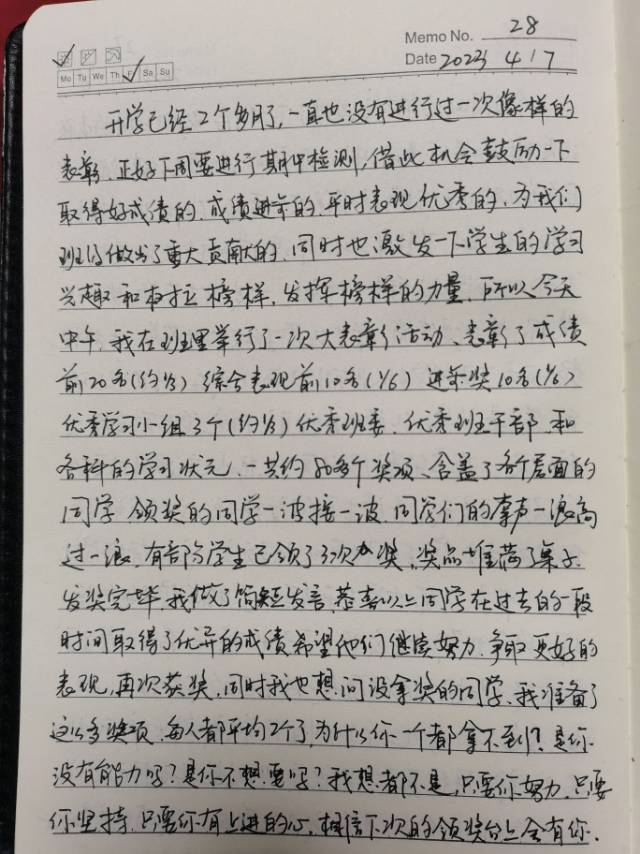 Memo No. 28
Date 2023 4 17
Mo Tu We Th F Sa Su
开学已经2个多月了,一直也没有进行过一次像样的
表彰,正好下周要进行期中检测,借此机会鼓励一下
取得好成绩的,成绩进步的,平时表现优秀的,为我们
班级做出了重大贡献的,同时也激发一下学生的学习
兴趣和树立榜样,发挥榜样的力量,所以今天
中午,我在班里举行了一次大表彰活动、表彰了成绩
前20名(约⅓) 综合表现前10名(⅙) 进步奖10名(⅙)
优秀学习小组3个(约⅓)优秀班委,优秀班干部,和
各科的学习状元,一共约80多个奖项、含盖了各个层面的
同学 领奖的同学一波接一波,同学们的掌声一浪高
过一浪,有部分学生已领了3次奖,奖品堆满了桌子.
发奖完毕,我做了简短发言,恭喜以上同学在过去的一段
时间取得了优异的成绩希望他们继续努力,争取更好的
表现,再次获奖,同时我也想问没拿奖的同学,我准备了
这么多奖项,每人都平均2个了,为什么你一个都拿不到?是你
没有能力吗?是你不想要吗?我想都不是,只要你努力,只要
你坚持,只要你有上进的心,相信下次的领奖台上会有你.